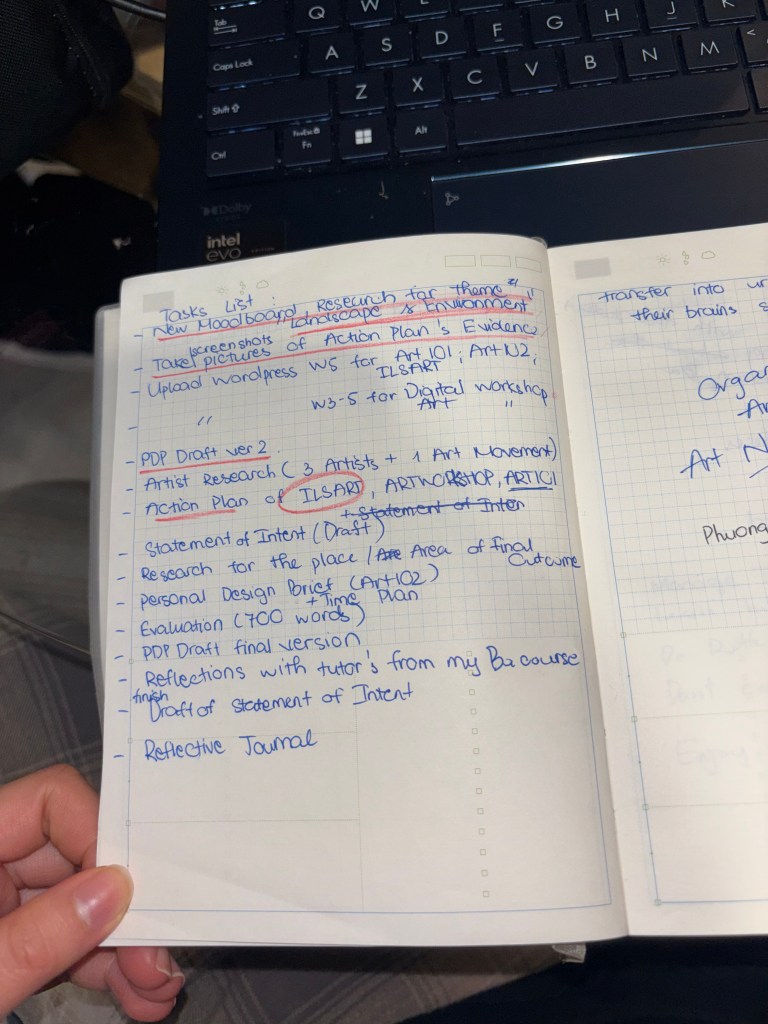 Tab
Q W
A S D F G H J K
Caps Lock
Z X C V B N M <
Shift
Ctrl Fn Alt
Dolby
intel
evo
Tasks List :
- New Moodboard Research for theme "
Landscape & Environment "
- Take screenshots / pictures of Action Plan's Evidence
- Upload Wordpress W5 for Art 101 ; Art 102 ;
ILSART
- " W3-5 for Digital Workshop
Art "
- PDP Draft ver 2
- Artist Research ( 3 Artists + 1 Art Movement)
- Action Plan of ILSART, ARTWORKSHOP, ART101
+ Statement of Inten
- Statement of Intent (Draft)
- Research for the place / Are Area of final
Outcome
- Personal Design Brief (Art 102)
+ Time Plan
- Evaluation (700 words)
- PDP Draft final version
- Reflections with tutor's from my Ba course
- finish Draft of Statement of Intent
- Reflective Journal
transfer into
their brains
Organ
Art
Phuong